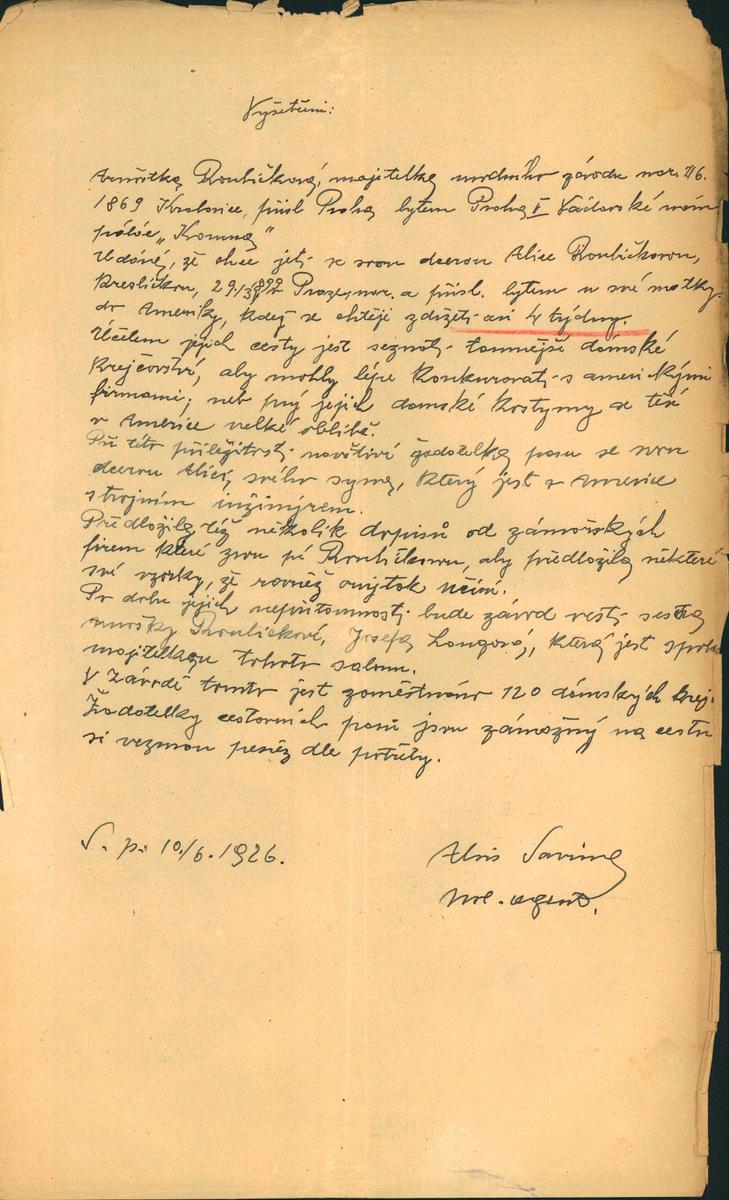 Vyšetření:
Arnoštka Roubíčková, majitelka modního závodu nar. 7/6.
1869 Kralovice, přísl. Praha, bytem Praha I Václavské nám
palác „Koruna"
Udává, že chce jeti se svou dcerou Alice Roubíčkovou,
kresličkou, 29/3 1892 Praze, nar. a přísl. bytem u své matky
do Ameriky, kdež se chtějí zdržeti asi 4 týdny.
Účelem jejich cesty jest seznati tamnější dámské
krejčovství, aby mohly lépe konkurovati s americkými
firmami; neb prý jejich damské kostymy se těší
v Americe velké oblibě.
Při této příležitosti navštíví žadatelka pasu se svou
dcerou Alicí, svého syna, který jest v Americe
strojním inžinýrem.
Předložila též několik dopisů od zámořských
firem které zvou pí Roubíčkovou, aby předložila některé
své vzorky, že rovněž
Po dobu jejich nepřítomnosti bude závod vésti sestra
Roubíčkové, Josefa Langová, která jest spolu
majitelkou tohoto salonu.
V závodě tomto jest zaměstnáno 120 dámských krej.
Žadatelky cestovních pasů jsou zámožný na cestu
si vezmou peněz dle potřeby.
S. p. 10./6. 1926.
Alois
pol. agent.